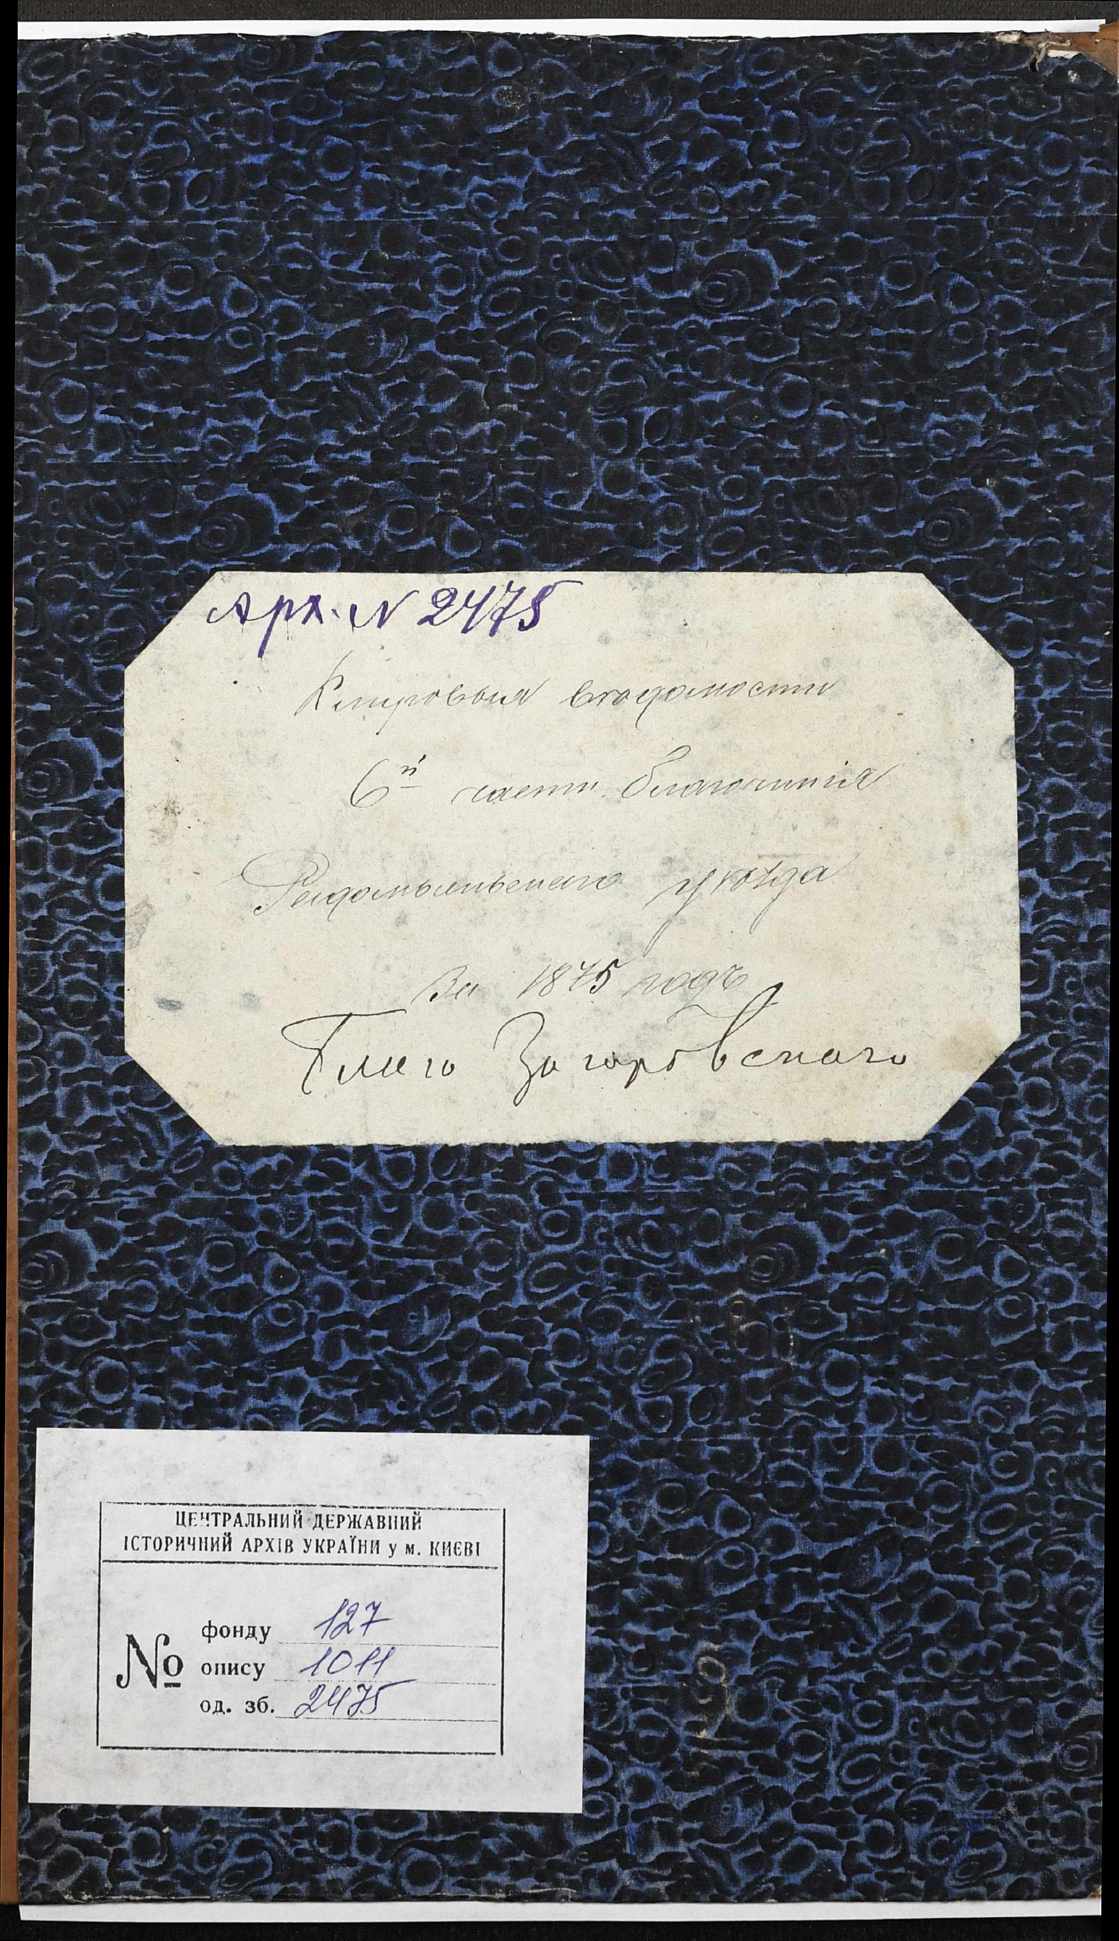 Арх. N 2475
Клировыя вѣдомости
6й части благочинія
Радомысльскаго уѣзда
За 1875 годъ
Благо Загоровскаго
ЦЕНТРАЛЬНИЙ ДЕРЖАВНИЙ
ІСТОРИЧНИЙ АРХІВ УКРАЇНИ у м. КИЄВІ
№
фонду 127
опису 1011
од. зб. 2475